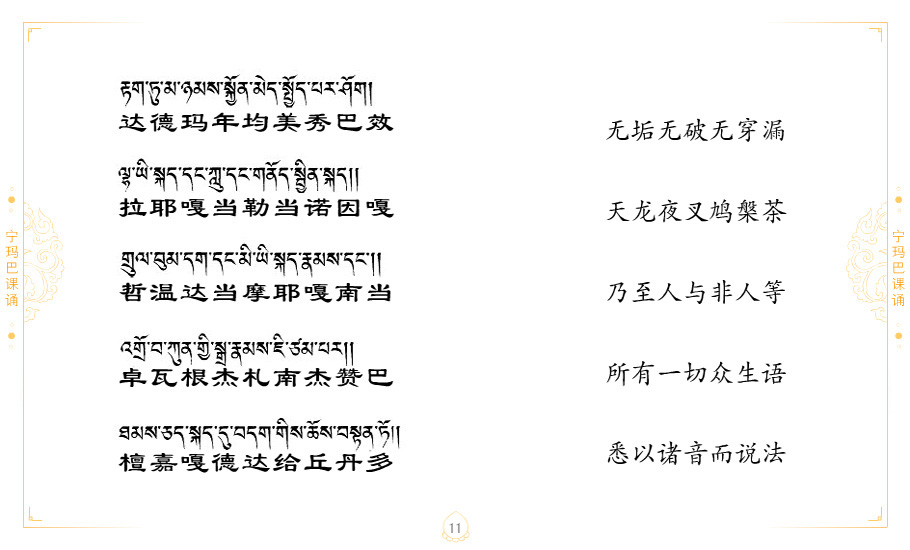 རྟག་ཏུ་མ་ཉམས་སྐྱོན་མེད་སྤྱོད་པར་ཤོག།
达德玛年均美秀巴效
无垢无破无穿漏
ལྷ་ཡི་སྐད་དང་ཀླུ་དང་གནོད་སྦྱིན་སྐད།།
拉耶嘎当勒当诺因嘎
天龙夜叉鸠槃茶
གྲུལ་བུམ་དག་དང་མི་ཡི་སྐད་རྣམས་དང་།།
哲温达当摩耶嘎南当
乃至人与非人等
འགྲོ་བ་ཀུན་གྱི་སྒྲ་རྣམས་ཇི་ཙམ་པར།།
卓瓦根杰札南杰赞巴
所有一切众生语
ཐམས་ཅད་སྐད་དུ་བདག་གིས་ཆོས་བསྟན་ཏོ།།
檀嘉嘎德达给丘丹多
悉以诸音而说法
宁玛巴课诵
宁玛巴课诵
11